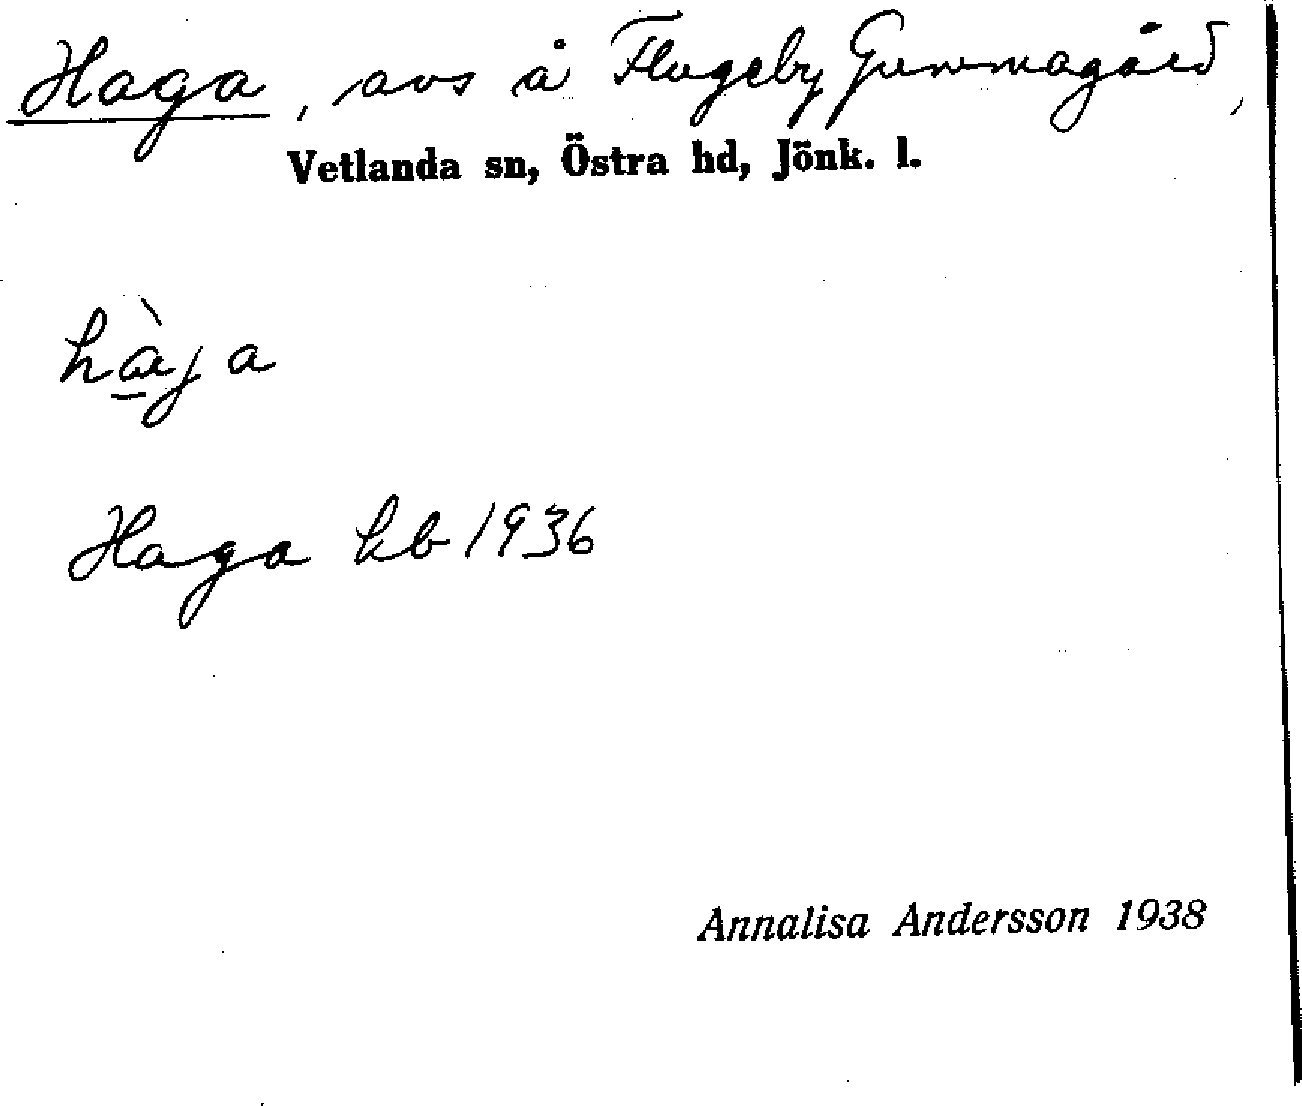 Haga, avs å Flugeby Gummagård,
Vetlanda sn, Östra hd, Jönk. l.
hàja
Haga kb 1936
Annalisa Andersson 1938